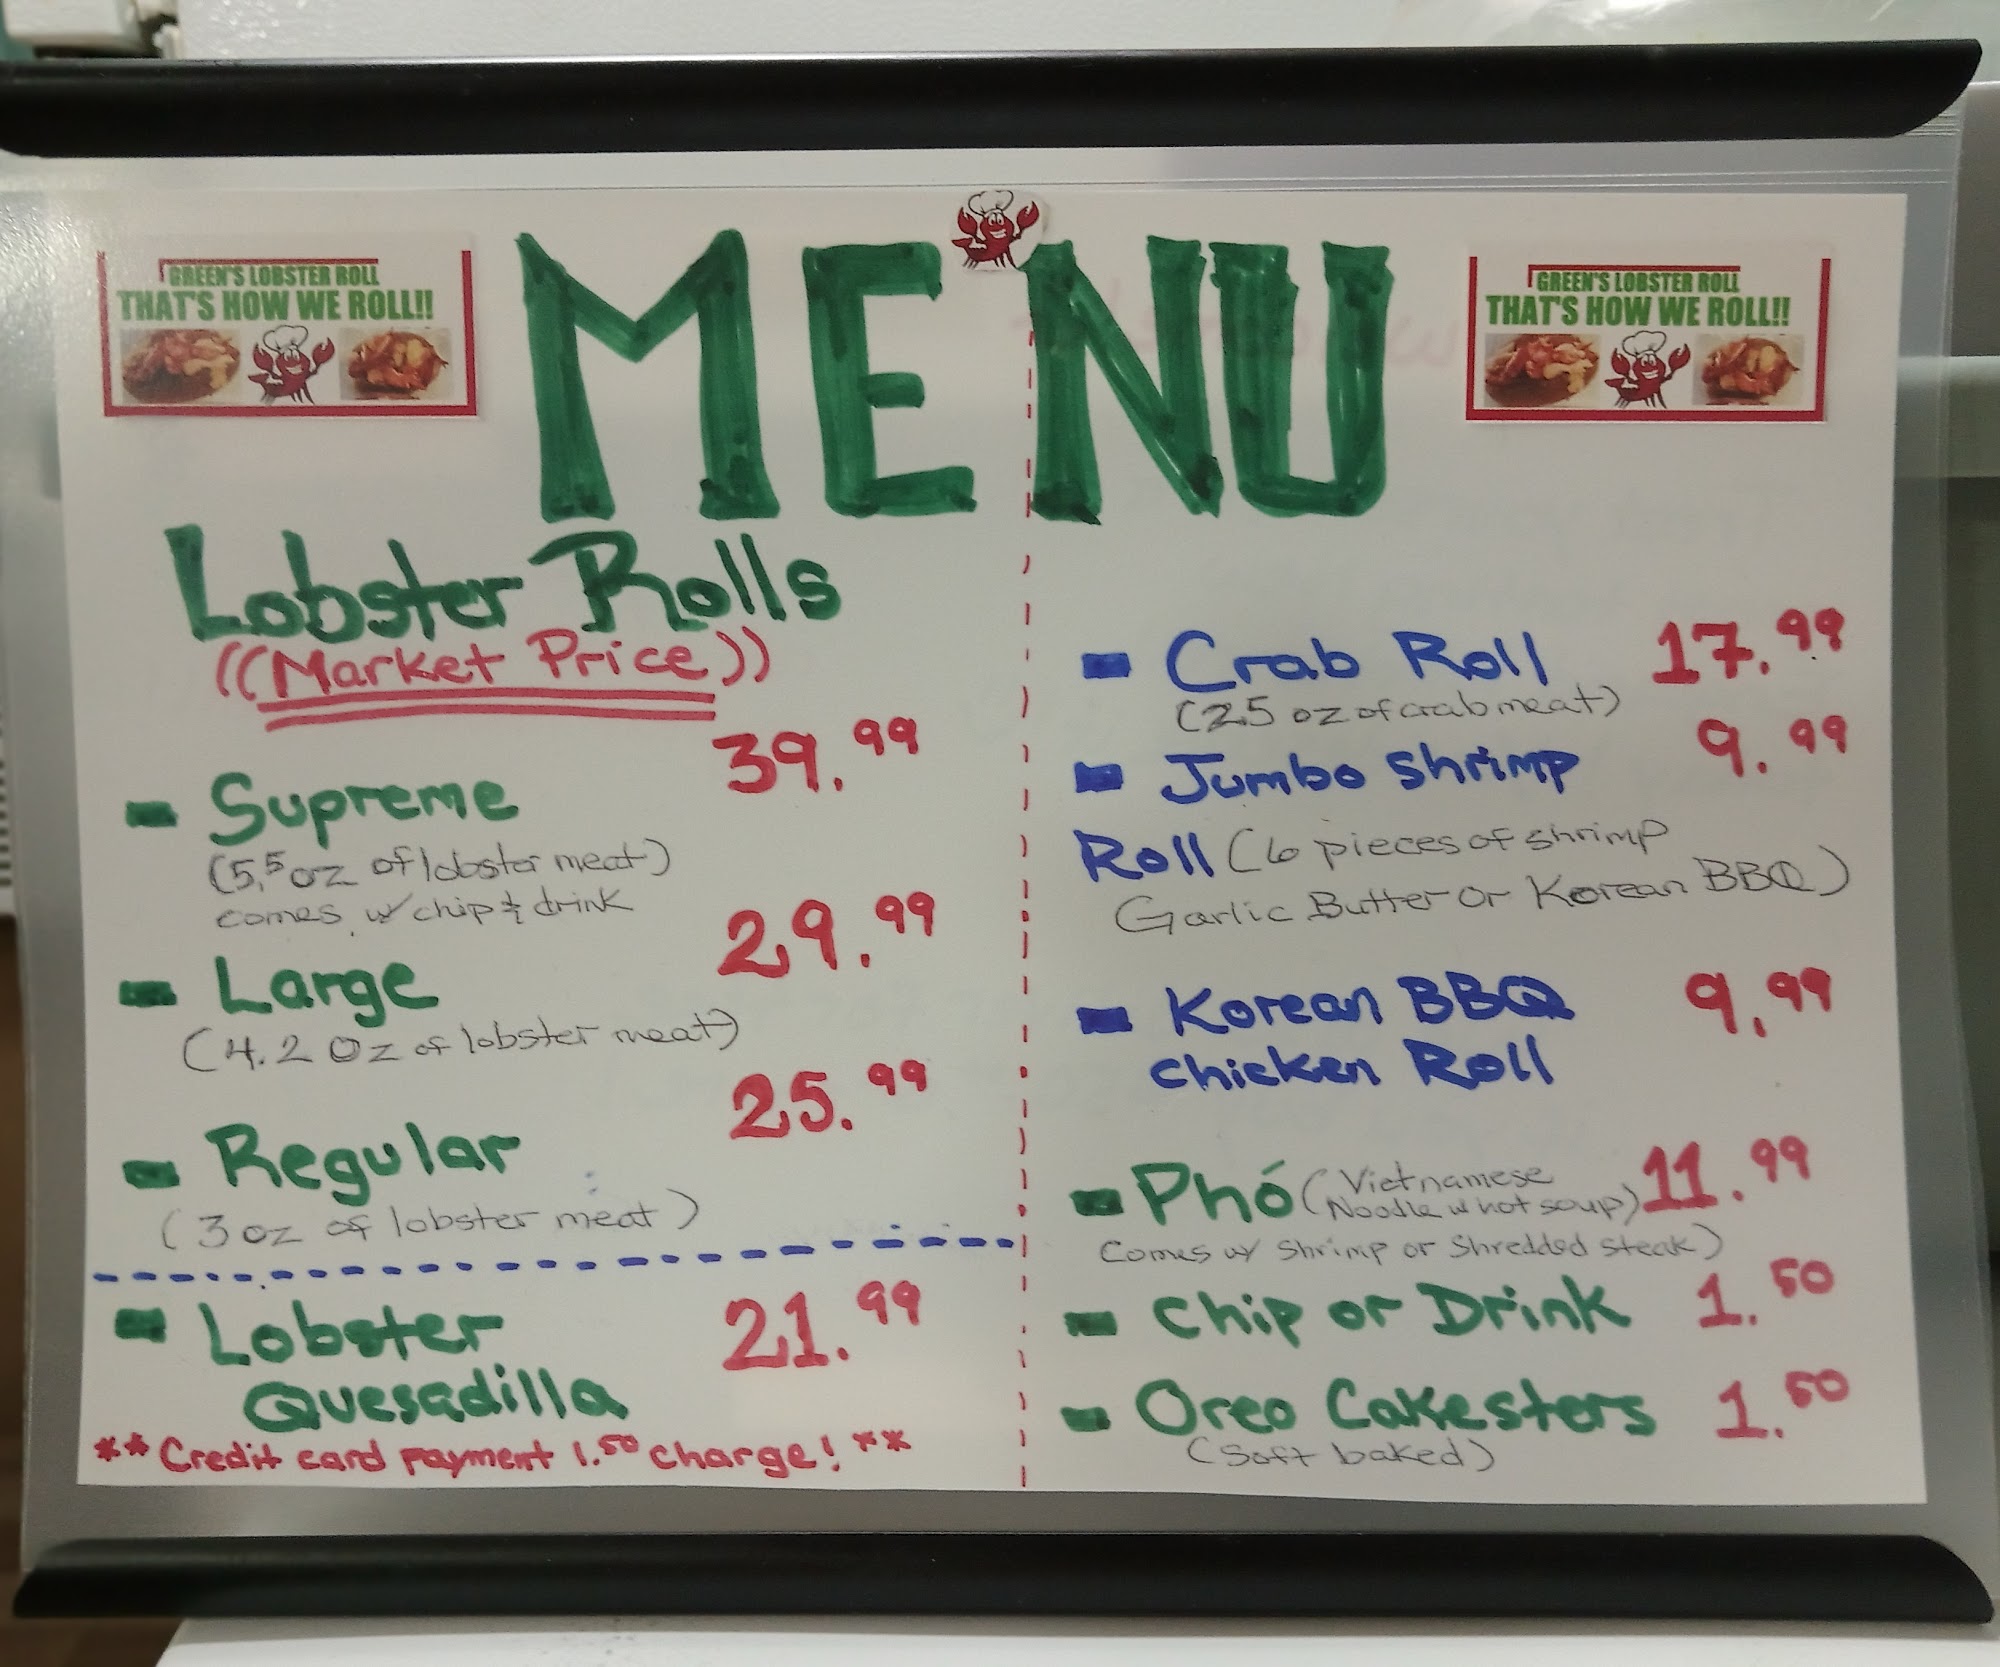 GREEN'S LOBSTER ROLL
THAT'S HOW WE ROLL!!
MENU
GREEN'S LOBSTER ROLL
THAT'S HOW WE ROLL!!
Lobster Rolls
((Market Price))
- Supreme 39.99
(5.5 oz of lobster meat)
comes w/ chip & drink
- Large 29.99
(4.2 oz of lobster meat)
- Regular 25.99
(3 oz of lobster meat)
- Lobster 21.99
Quesadilla
** Credit card payment 1.50 charge! **
- Crab Roll 17.99
(2.5 oz of crab meat)
- Jumbo shrimp 9.99
Roll (6 pieces of shrimp
Garlic Butter or Korean BBQ)
- Korean BBQ 9.99
chicken Roll
- Phó (Vietnamese 11.99
Noodle w hot soup)
Comes w/ Shrimp or Shredded steak)
- Chip or Drink 1.50
- Oreo Cakesters 1.50
(Soft baked)